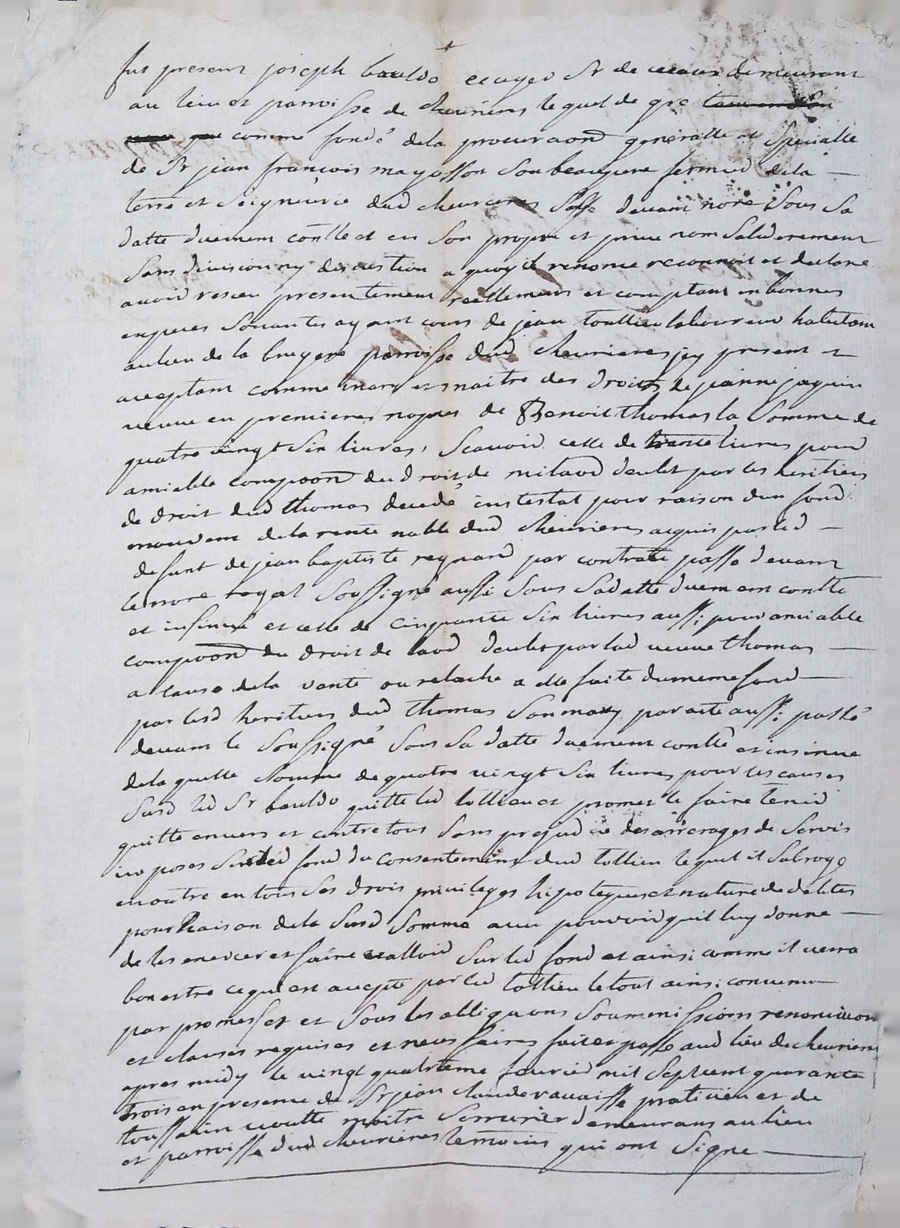 fut present joseph bauldo ecuyer Sr de demeurant
au lieu et parroisse de cheurieres lequel de gre
comme fondé dela procuraõn generalle et Specialle
de Sr jean françois mayosson Son beaupere fermier dela
terre et Seigneurie dud cheurieres passé devant nore Sous Sa
datte duement conlle et en Son propre et prive nom Solidairement
Sans division ny discution a quoy il renonce reconnoit et declare
avoir receu presentement reellement et comptant en bonnes
especes Sonantes ayant cours de jean tollieu laboureur habitant
au lieu de la bruyere parroisse dud cheurieres jcy present et
acceptant comme mary et maitre des droits de jeanne jaquin
veuve en premieres nopces de Benoit thomas la Somme de
quatre vingt Six livres, Scavoir celle de trente livres pour
amiable compoõn du droit de milaod deubt par les heritiers
de droit dud thomas decedé intestat pour raison dun fond
mouvent dela rente noble dud cheurieres acquis par led
defunt de jean baptiste reynard par contrat passé devant
le nore royal Soussigné aussi Sous Sa datte duement conlle
et insinué et celle de cinquante Six livres aussi pour amiable
compoõn du droit de laod deubt par lad veuve thomas
a cause dela vante ou relache a elle faite du meme fond
par lesd heritiers dud thomas Son mary par acte aussi passé
devant le Soussigné Sous Sa datte duement conllé et insinué
de la quelle Somme de quatre vingt Six livres pour les causes
Susd led Sr bauldo quitte led tollieu et promet le faire tenir
quitte envers et contre tous Sans prejudice des arrerages de Servis
imposes Sur led fond du consentement dud tollieu lequel il Subroge
en outre en tous Ses drois privileges hipoteques et nature de debtes
pour Raison dela Susd Somme avec pouvoir quil luy donne
de les exercer et faire valloir Sur led fond et ainsi comme il verra
bon estre ce qui est accepté par led tollieu le tout ainsi convenu
par promesses et Sous les obligaõns Soummissions renonciaõn
et clauses requises et necessaires fait et passé aud lieu de cheurieres
apres midy le vingt quatrieme fevrier mil Sept cent quarante
trois en presence de Sr jean claude ravaisse praticien et de
toussain maitre Serrurier demeurans au lieu
et parroisse dud cheurieres temoins qui ont Signe